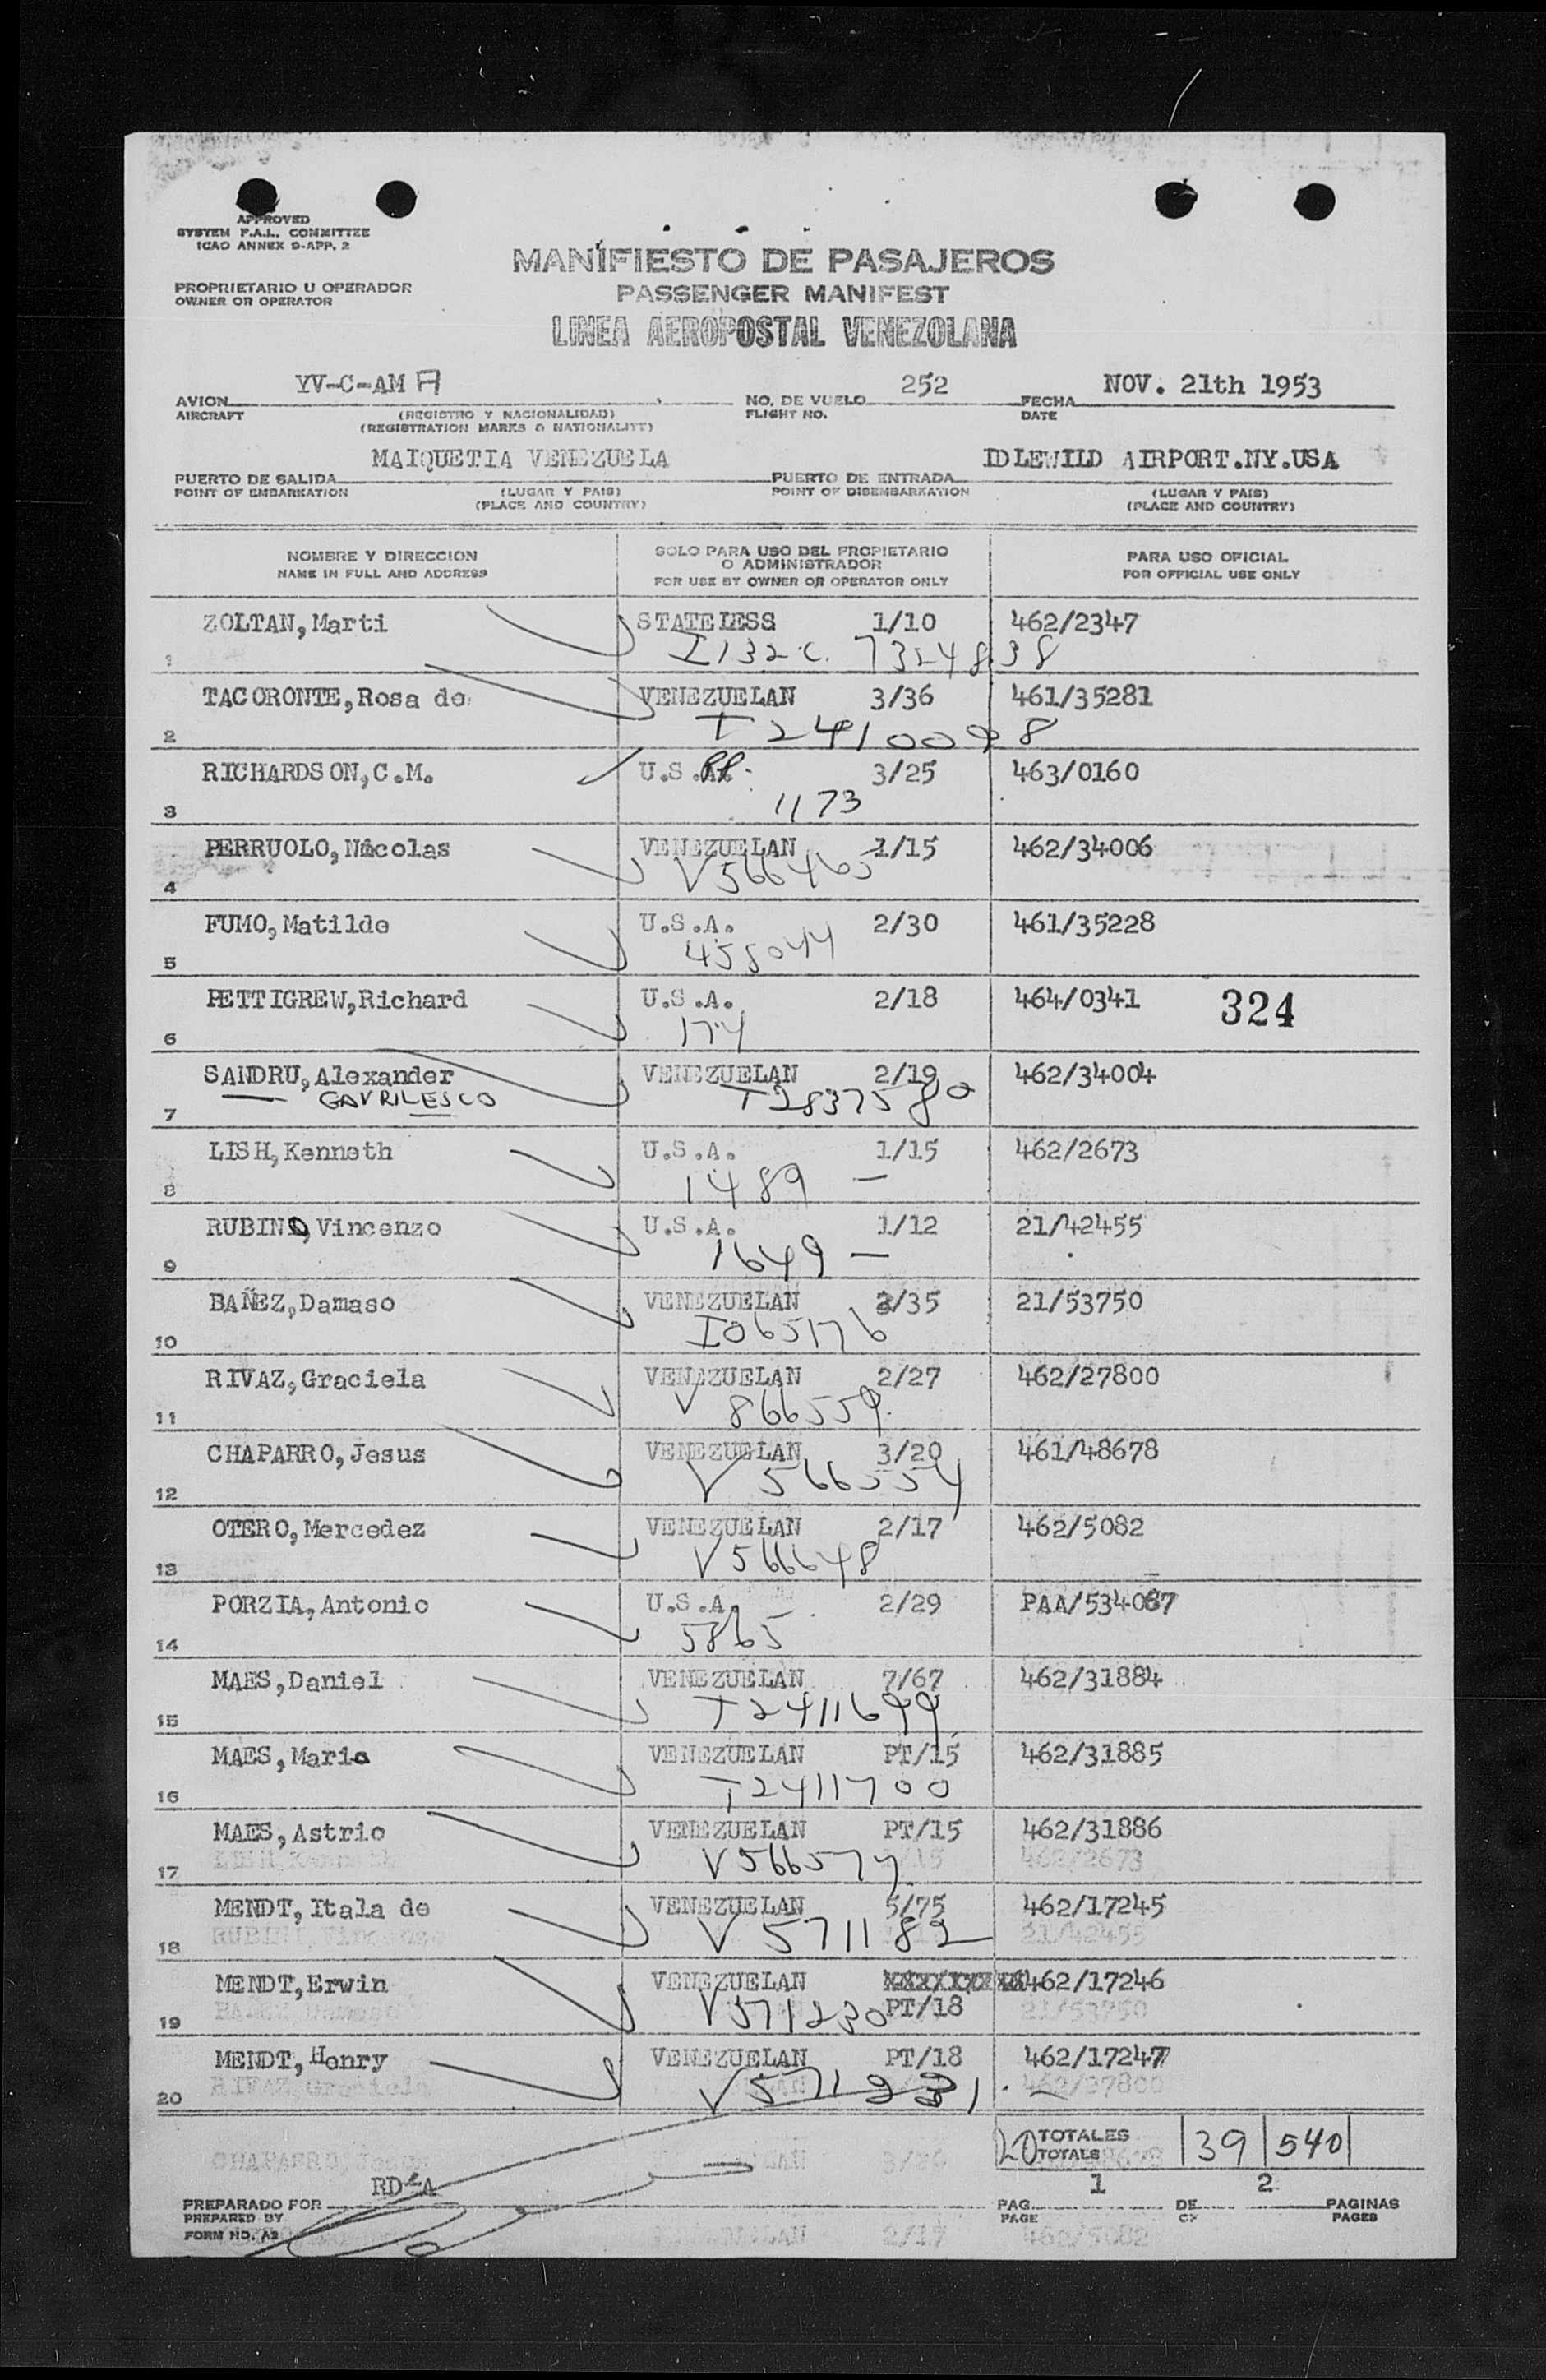 APPROVED
SYSTEM F.A.L. COMMITTEE
ICAO ANNEX 9-APP. 2
MANIFIESTO DE PASAJEROS
PROPRIETARIO U OPERADOR
OWNER OR OPERATOR
PASSENGER MANIFEST
LINEA AEROPOSTAL VENEZOLANA
AVION YV-C-AM A NO. DE VUELO 252 FECHA NOV. 21th 1953
AIRCRAFT (REGISTRO Y NACIONALIDAD) FLIGHT NO. DATE
(REGISTRATION MARKS & NATIONALITY)
PUERTO DE SALIDA MAIQUETIA VENEZUELA PUERTO DE ENTRADA IDLEWILD AIRPORT.NY.USA
POINT OF EMBARKATION (LUGAR Y PAIS) POINT OF DISEMBARKATION (LUGAR Y PAIS)
(PLACE AND COUNTRY) (PLACE AND COUNTRY)
NOMBRE Y DIRECCION SOLO PARA USO DEL PROPIETARIO O ADMINISTRADOR PARA USO OFICIAL
NAME IN FULL AND ADDRESS FOR USE BY OWNER OR OPERATOR ONLY FOR OFFICIAL USE ONLY
ZOLTAN,Marti STATELESS 1/10 462/2347
1 I132 C. 7324838
TACORONTE,Rosa de VENEZUELAN 3/36 461/35281
2 T2410098
RICHARDSON,C.M. U.S.A. PP. 3/25 463/0160
3 1173
PERRUOLO,Nicolas VENEZUELAN 1/15 462/34006
4 V566465
FUMO,Matilde U.S.A. 2/30 461/35228
5 458044
PETTIGREW,Richard U.S.A. 2/18 464/0341 324
6 174
SANDRU,Alexander VENEZUELAN 2/19 462/34004
7 GAVRILESCO T2837580
LISH,Kenneth U.S.A. 1/15 462/2673
8 1489 —
RUBINO,Vincenzo U.S.A. 1/12 21/42455
9 1649 —
BAÑEZ,Damaso VENEZUELAN 3/35 21/53750
10 I065176
RIVAZ,Graciela VENEZUELAN 2/27 462/27800
11 V 866559
CHAPARRO,Jesus VENEZUELAN 3/20 461/48678
12 V 566554
OTERO,Mercedez VENEZUELAN 2/17 462/5082
13 V566648
PORZIA,Antonio U.S.A. 2/29 PAA/534067
14 5865
MAES,Daniel VENEZUELAN 7/67 462/31884
15 T2411699
MAES,Maria VENEZUELAN PT/15 462/31885
16 T2411700
MAES,Astric VENEZUELAN PT/15 462/31886
17 V566577
MENDT,Itala de VENEZUELAN 5/75 462/17245
18 V 571182
MENDT,Erwin VENEZUELAN 462/17246
19 V571230 PT/18
MENDT,Henry VENEZUELAN PT/18 462/17247
20 V571231
20 TOTALES 39 540
TOTALS
RD-A 1 2
PREPARADO POR PAG. DE PAGINAS
PREPARED BY PAGE OF PAGES
FORM NO. A2